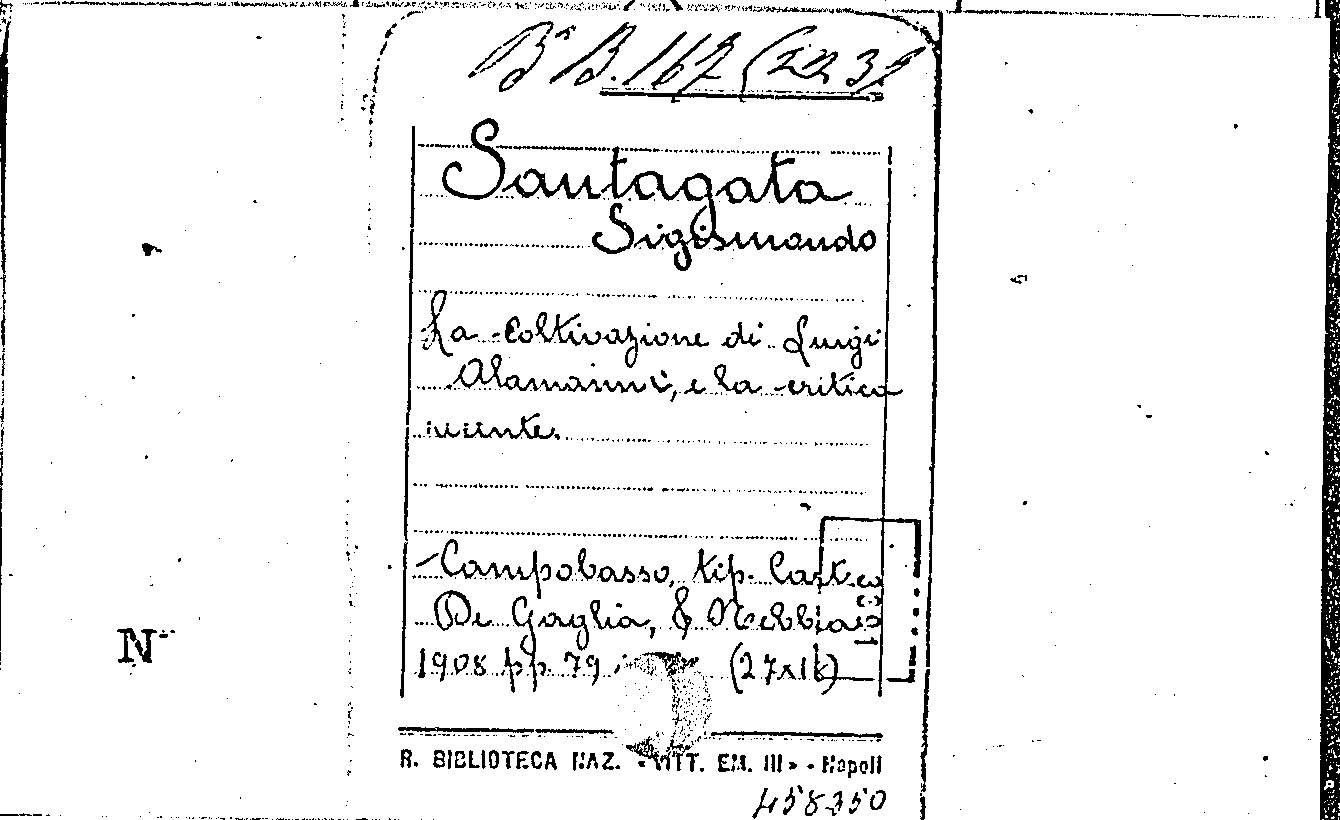 Bª B. 167 (223)
Santagata
Sigismondo
La Coltivazione di Luigi
Alamanni, e la critica
recente.
Campobasso, tip. Cart.
De Gaglia, & Nebbia
1908 pp. 79 (27x18)
R. BIBLIOTECA NAZ. « VITT. EM. III » - Napoli
458350
N